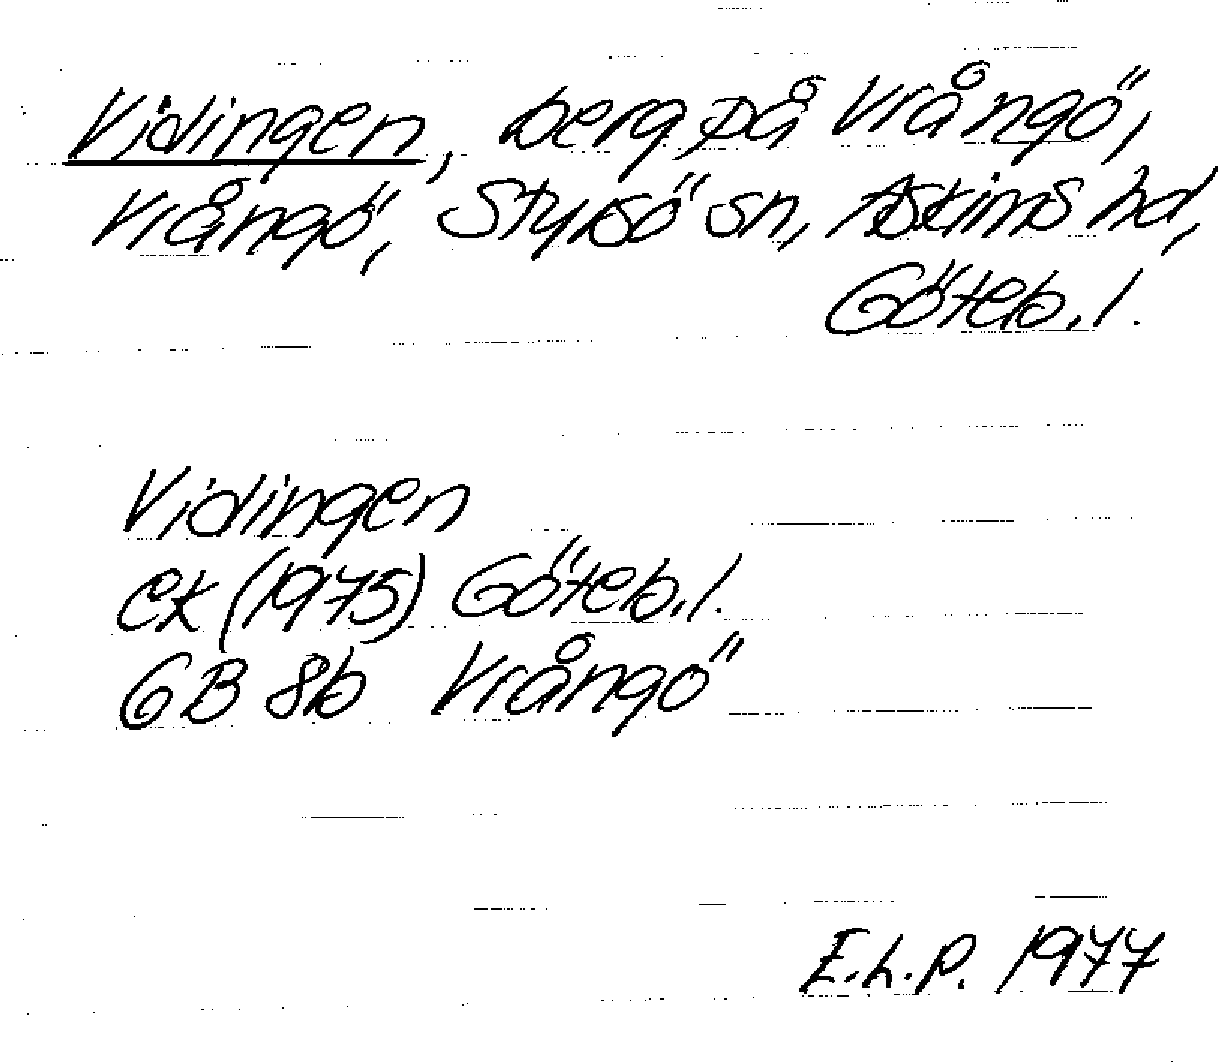 Vidingen, berg på Vrångö,
Vrångö, Styrsö sn, Askims hd,
Göteb. l.
Vidingen
ek (1975) Göteb. l.
GB 8b Vrångö
E.L.P. 1977